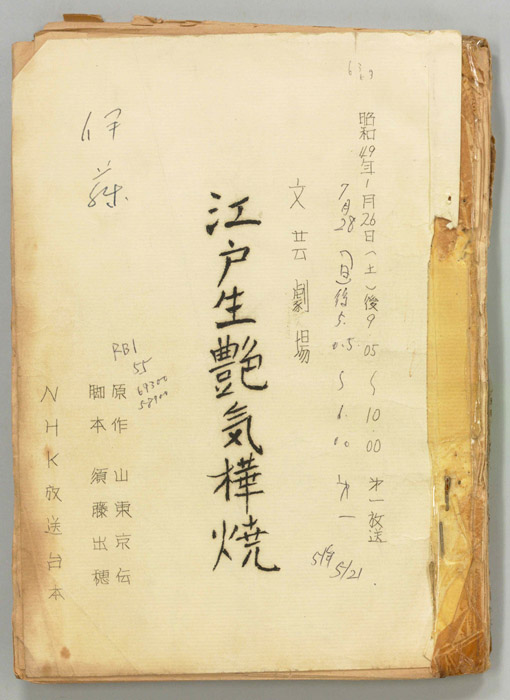 昭和49年1月26日(土)後9.05~10.00 第一放送
7月28(日)後5.05~6.00 第一
文芸劇場
江戸生艶気樺焼
伊藤
RB1
55
69300
58900
原作 山東京伝
脚本 須藤出穂
NHK放送台本
5/21